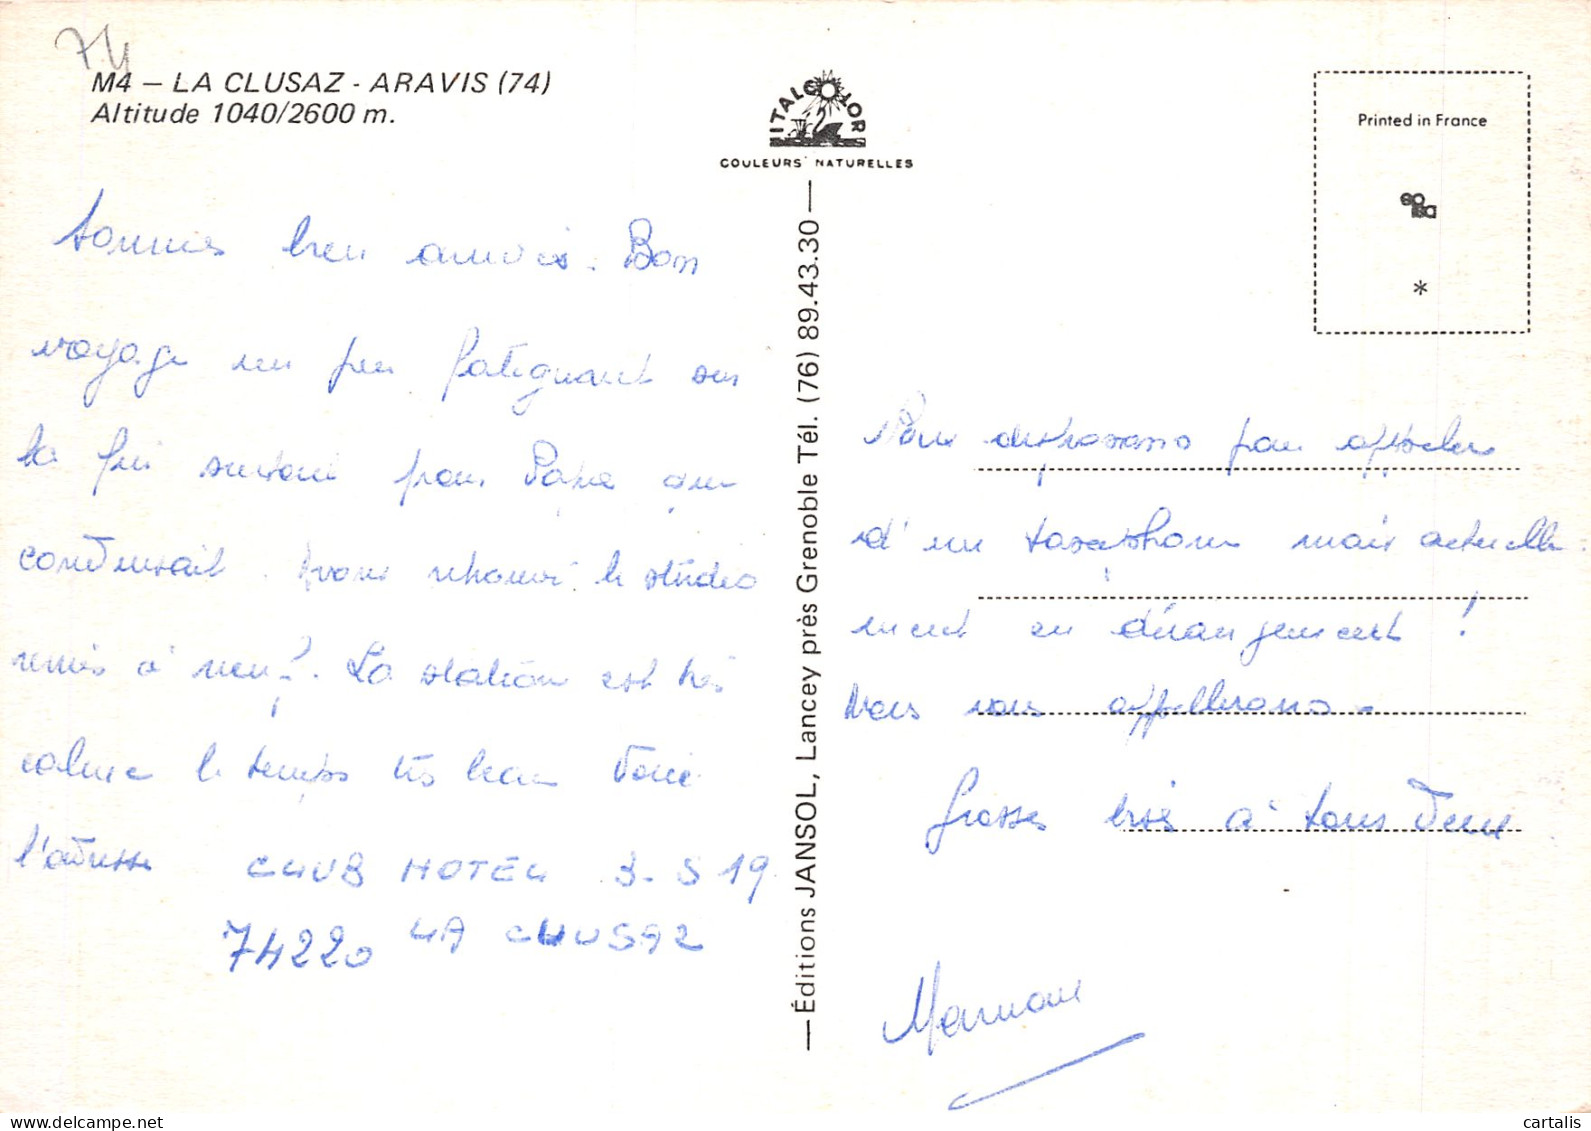 74
M4 — LA CLUSAZ - ARAVIS (74)
Altitude 1040/2600 m.
ITALCOLOR
COULEURS NATURELLES
Printed in France
*
Sommes bien arrivés. Bon
voyage un peu fatiguant sur
la fin surtout pour Papa qui
conduisait. Avons retrouvé le studio
remis à neuf. La station est très
calme le temps très beau Voici
l'adresse CLUB HOTEL B.S 19
74220 LA CLUSAZ
—Éditions JANSOL, Lancey près Grenoble Tél. (76) 89.43.30—
Nous disposons pour appeler
d'un taxiphone mais actuelle-
ment en dérangement !
Nous vous appellerons.
Grosses bises à tous deux
Maman
cartalis